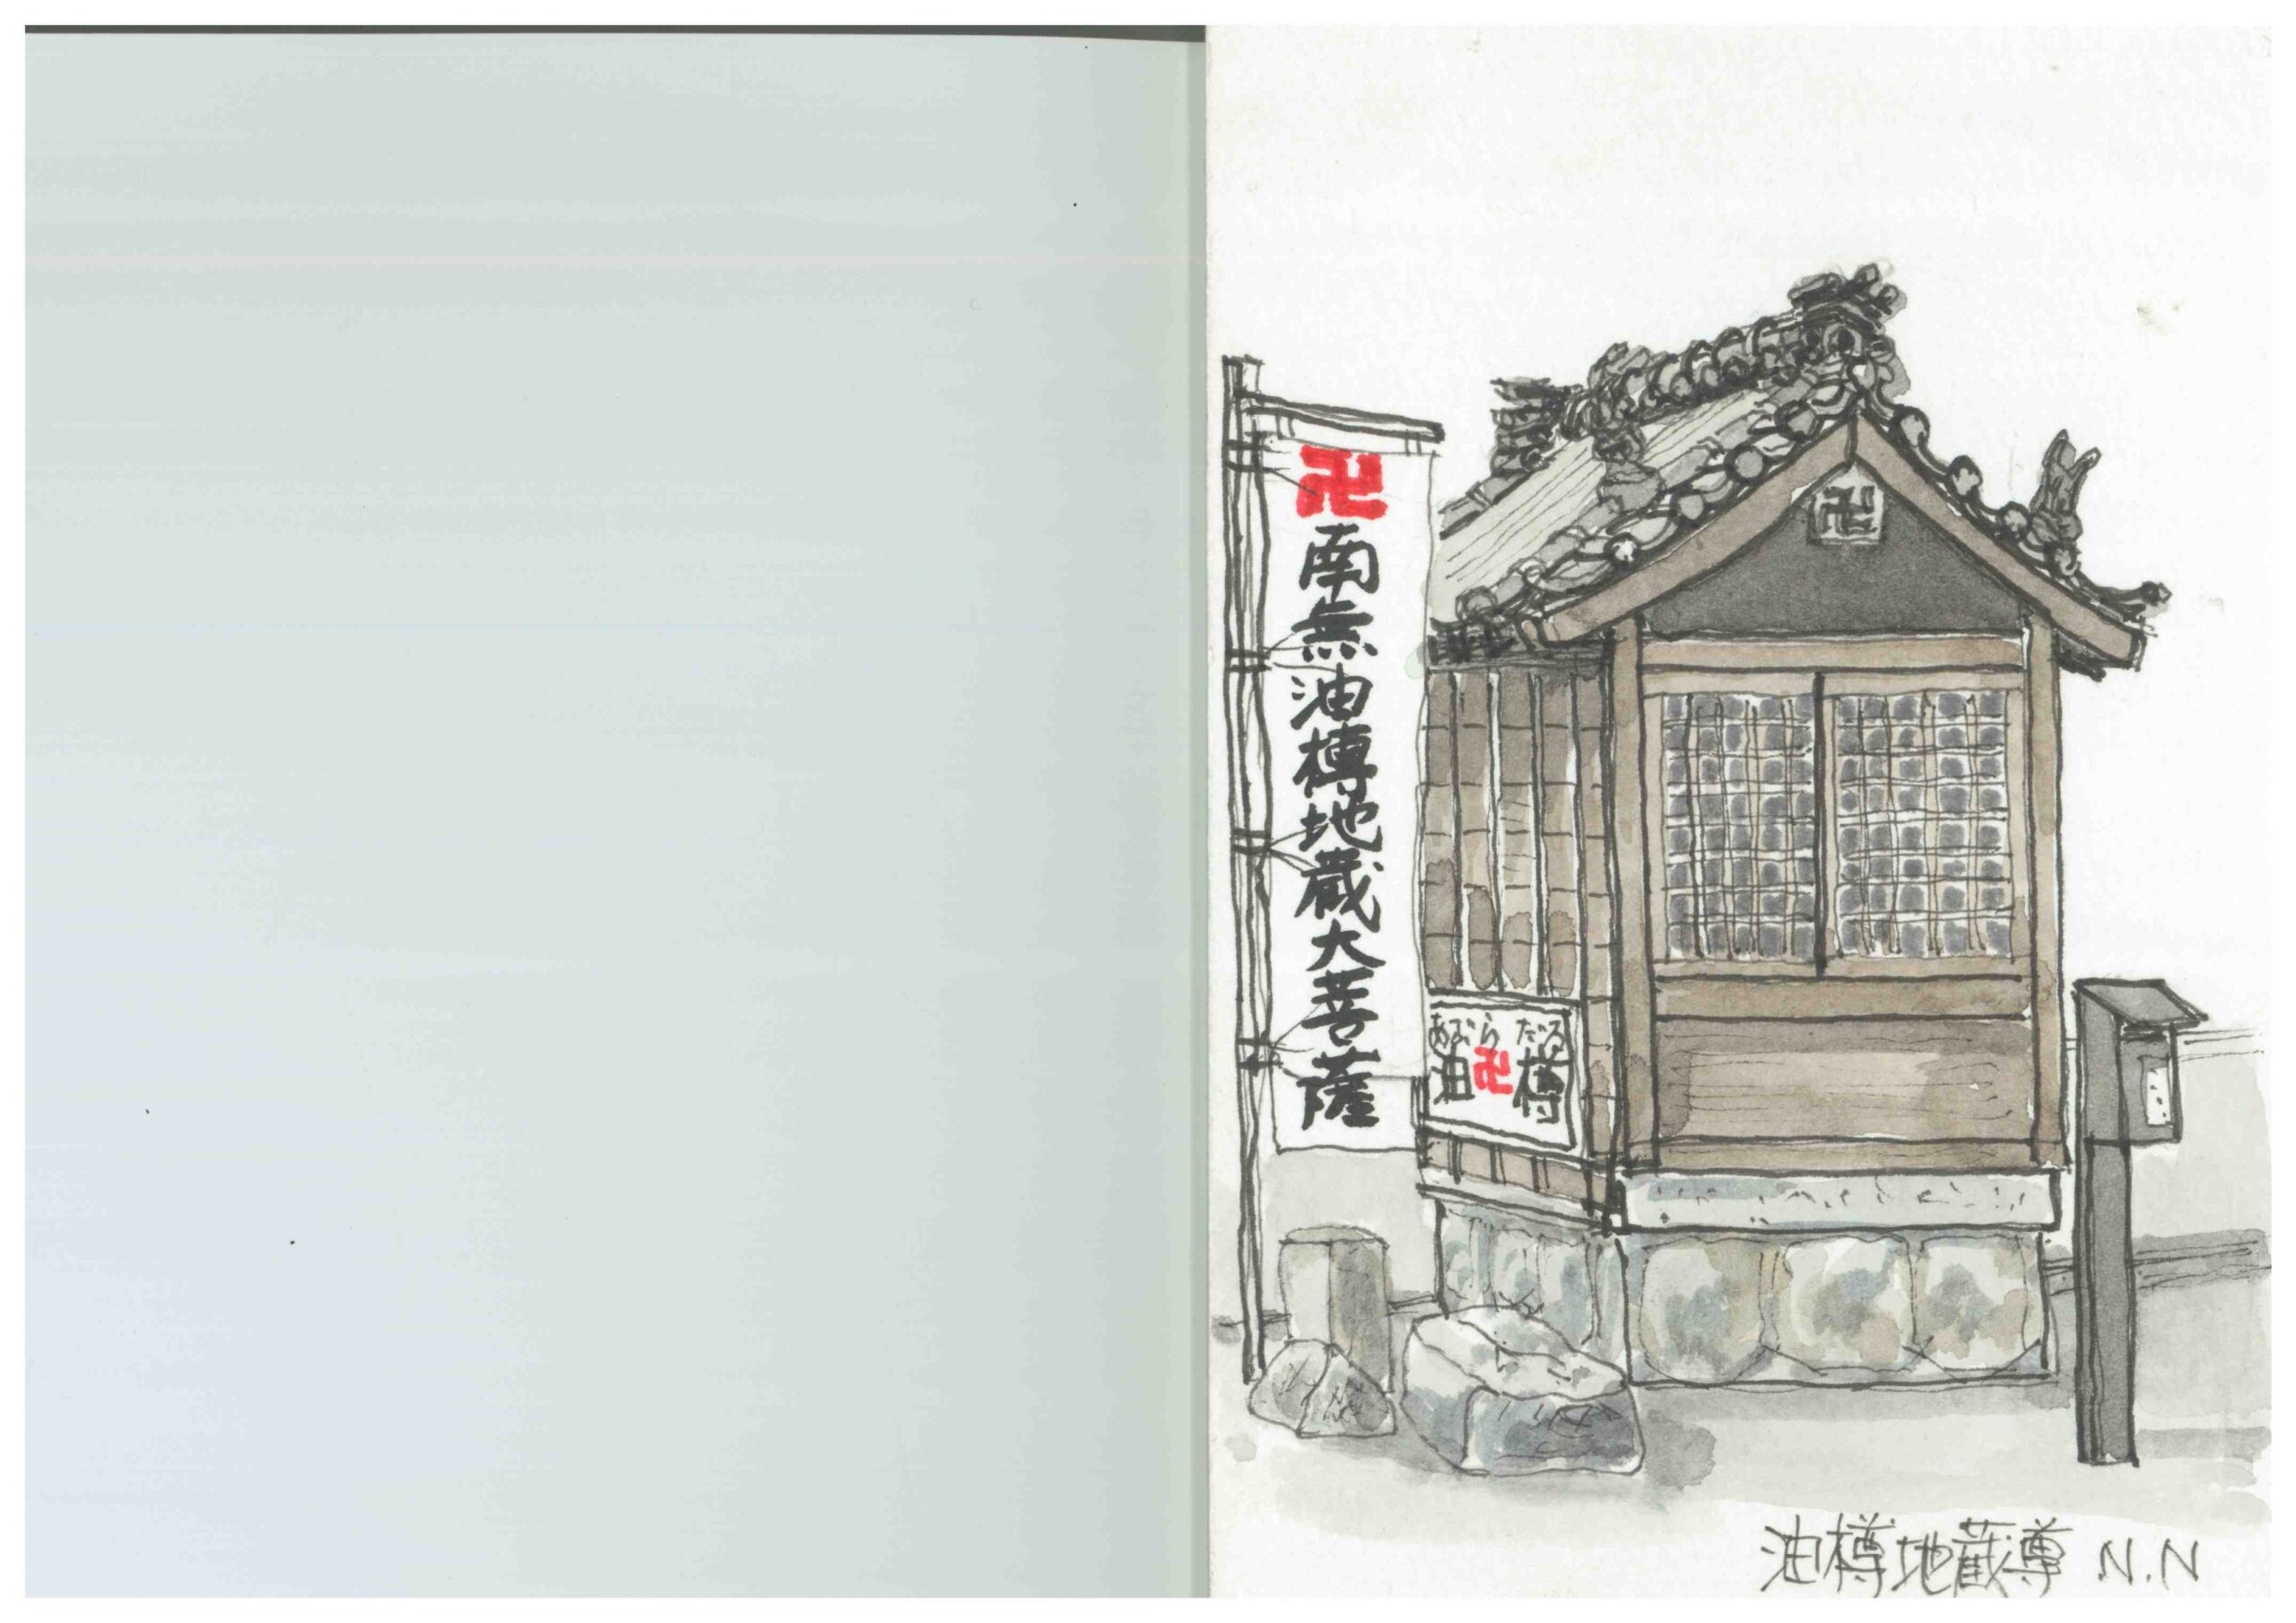 卍
南無油樽地蔵大菩薩
卍
あぶら だる
油卍樽
油樽地蔵尊 N.N